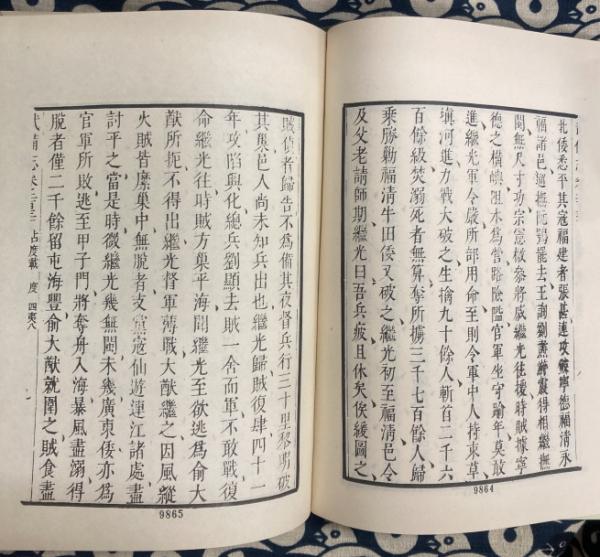 北倭悉平其寇福建者張甚連攻
寧德福清永
福諸邑
罷去王詢劉燾
得相繼撫
閩無尺寸功宗憲檄參將戚繼光往援時賊據寧
德之橫嶼阻木為營路險隘官軍坐守踰年莫敢
進繼光軍令嚴所部用命至則令軍中人持束草
填河進力戰大破之生擒九十餘人斬首二千六
百餘級焚溺死者無算奪所擄三千七百餘人歸
乘勝勦福清牛田倭又破之繼光初至福清邑令
及父老請師期繼光曰吾兵疲且休矣俟緩圖之
9864
賊偵者歸告不為備其夜督兵行三十里黎明破
其巢邑人尚未知兵出也繼光歸賊復肆四十一
年攻陷興化總兵劉顯去賊一舍而軍不敢戰復
命繼光往時賊方巢平海聞繼光至欲逃為俞大
猷所扼不得出繼光督軍薄戰大猷繼之因風縱
火賊皆縻巢中無脫者支黨寇仙遊連江諸處盡
討平之當是時微繼光幾無閩未幾廣東倭亦為
官軍所敗逃至甲子門將奪舟入海暴風盡溺得
脫者僅二千餘留屯海豐俞大猷就圍之賊食盡
武備志卷二百二十三 占度載 度 四夷八
9865